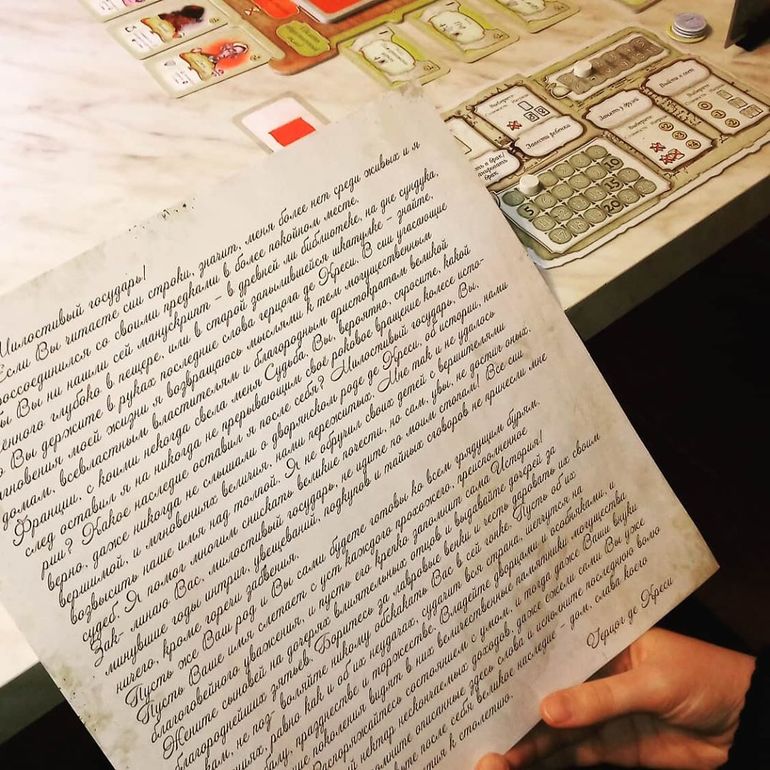 Милостивый государь!
Если Вы читаете сии строки, значит, меня более нет среди живых и я
воссоединился со своими предками в более покойном месте.
бы Вы ни нашли сей манускрипт – в древней ли библиотеке, на дне сундука,
глубоко в пещере, или в старой запылившейся шкатулке – знайте,
Вы держите в руках последние слова герцога де Креси. В сии угасающие
мгновения моей жизни я возвращаюсь мыслями к тем могущественным
домам, всевластным властителям и благородным аристократам великой
Франции, с коими некогда свела меня Судьба. Вы, вероятно, спросите, какой
след оставил я на никогда не прерывающим своё роковое вращение колесе исто-
рии? Какое наследие оставил я после себя? Милостивый государь, Вы,
верно, даже никогда не слышали о дворянском роде де Креси, об истории, нами
вершимой, и мгновениях величия, нами пережитых. Мне так и не удалось
возвысить наше имя над толпой. Я не обручил своих детей с вершителями
судеб. Я помог многим снискать великие почести, но сам, увы, не достиг оных.
Зак- линаю Вас, милостивый государь, не идите по моим стопам! Все сии
минувшие годы интриг, увещеваний, подкупов и тайных сговоров не принесли мне
ничего, кроме горечи забвения.
Пусть же Ваш род и Вы сами будете готовы ко всем грядущим бурям.
Пусть Ваше имя слетает с уст каждого прохожего, преисполненное
благоговейного уважения, и пусть его крепко запомнит сама История!
Жените сыновей на дочерях влиятельных отцов и выдавайте дочерей за
благороднейших зятьев. Боритесь за лавровые венки и честь даровать их своим
не поз воляйте никому обскакать Вас в сей гонке. Пусть об их
равно как и об их неудачах, судачит вся страна,
празднестве и торжестве. Владейте дворцами и особняками, и
поколения видят в них величественные памятники могущества
Распоряжайтесь состоянием с умом, и тогда даже Ваши внуки
нектар нескончаемых доходов, даже ежели сами Вы уже
описанные здесь слова и исполните последнюю волю
после себя великое наследие – дом, слава коего
к столетию.
Герцог де Креси
Выберите
Завести ребенка
Выберите
Занять у друзей
Выйти в свет
Выберите
5
10
15
20